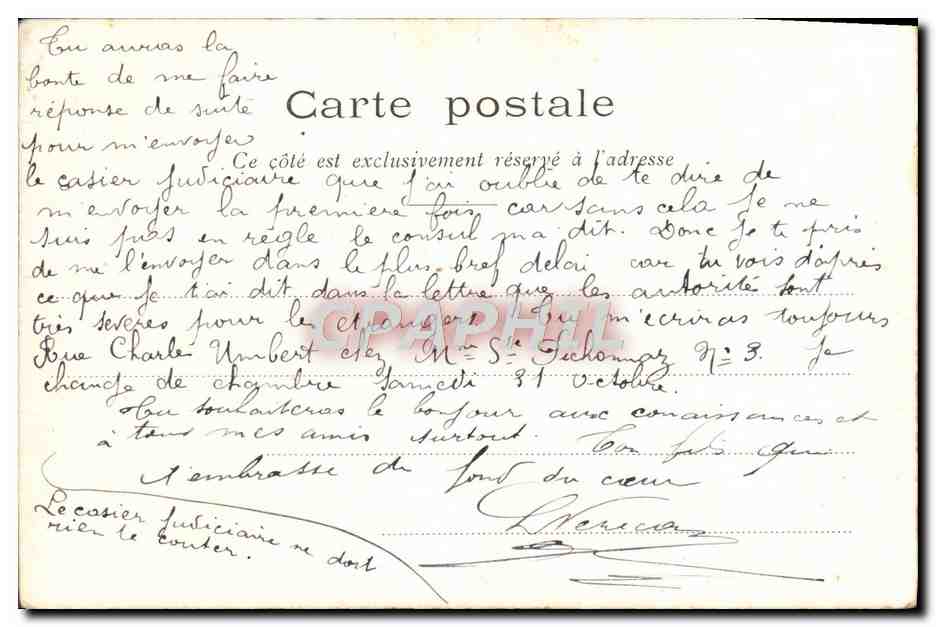 Tu auras la
bonte de me faire
réponse de suite
Carte postale
pour m'envoyer
Ce côté est exclusivement réservé à l'adresse
le casier judiciaire que j'ai oublié de te dire de
m'envoyer la premiere fois car sans cela je ne
suis pas en règle le consul ma dit. Donc je te pris
de me l'envoyer dans le plus bref delai car tu vois d'après
ce que je t'ai dit dans la lettre que les autorité sont
très severes pour les etrangers Tu m'écriras toujours
CPAPHIL
Rue Charles Umbert chez Mme Ste N° 3. Je
change de chambre Samedi 31 Octobre.
Tu souhaiteras le bonjour aux conaissances et
à tous mes amis surtout. Ton fils qui
t'embrasse du fond du cœur
Le casier judiciaire ne doit
rien te couter.